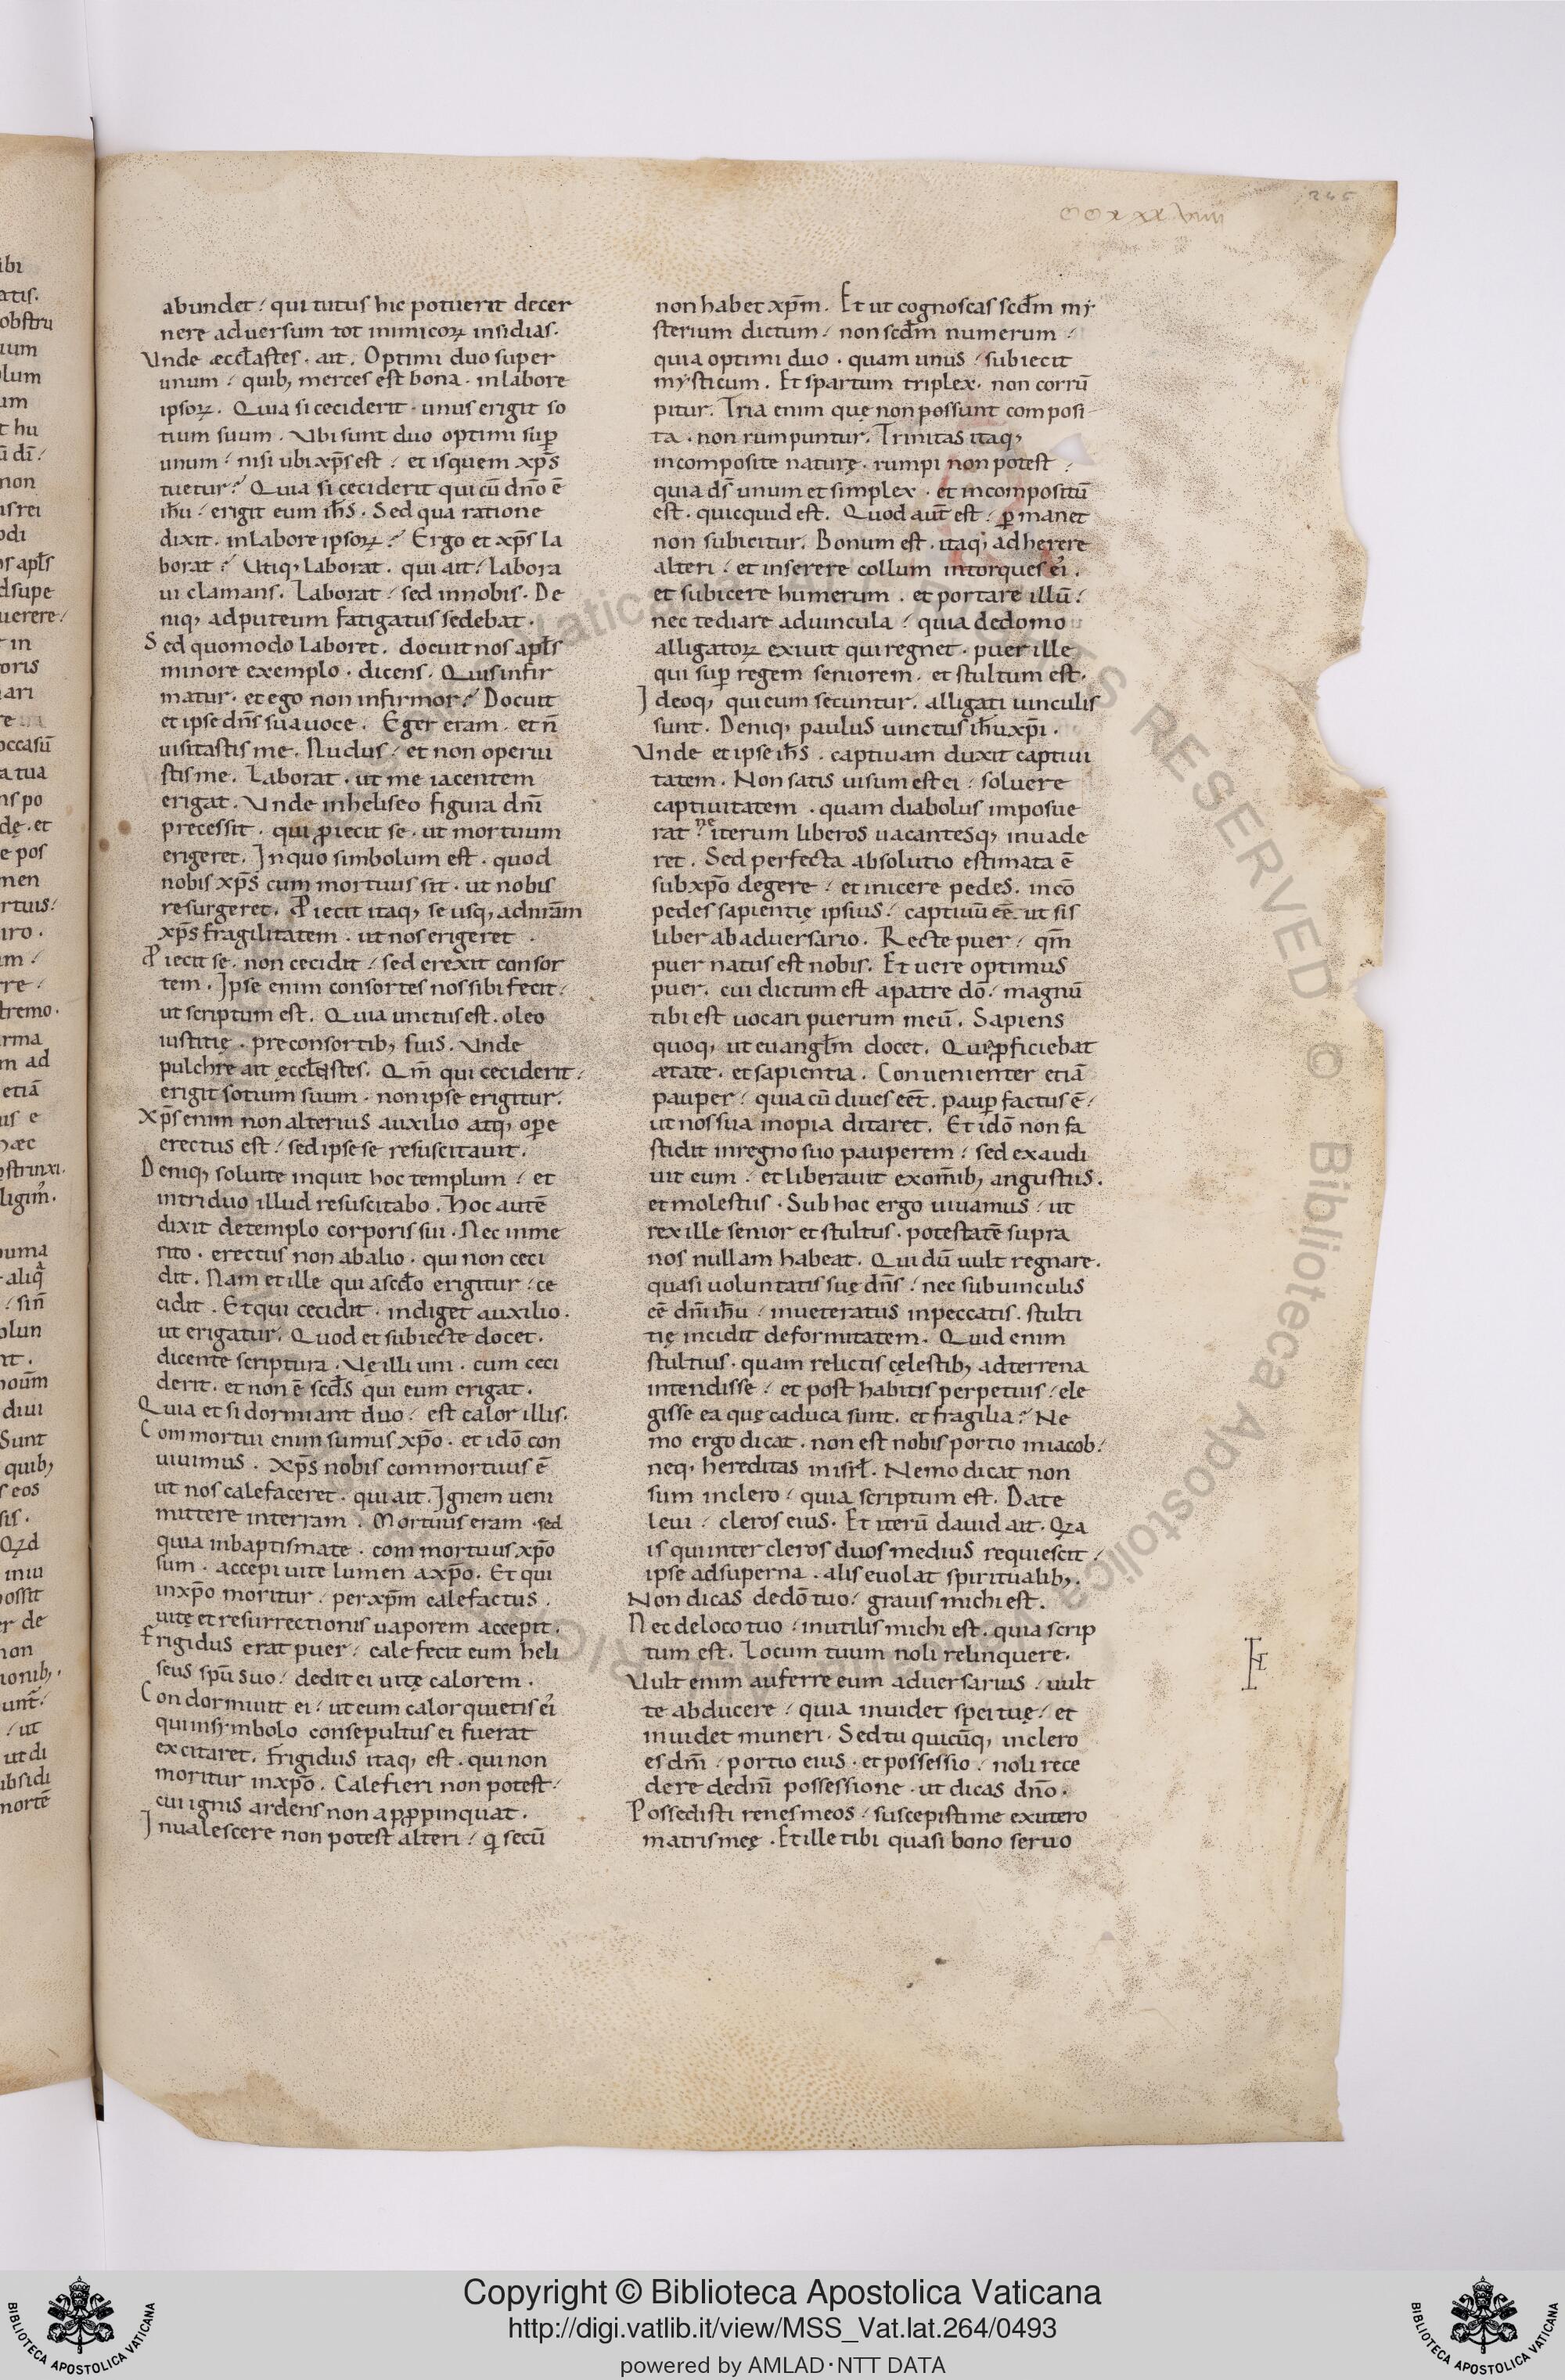 ccxxxviiii
245
abundet? qui tutus hic potuerit decer
nere aduersum tot inimicoꝝ insidias.
Vnde æccl̄astes. ait. Optimi duo super
unum? quib; merces est bona. in labore
ipsoꝝ. Quia si ceciderit. unus erigit so
tium suum. Vbi sunt duo optimi suꝑ
unum? nisi ubi xp̄s est? et is quem xp̄s
tuetur? Quia si ceciderit qui cū dn̄o ē
ih̄u? erigit eum ih̄s. Sed qua ratione
dixit. in labore ipsoꝝ? Ergo et xp̄s la
borat? Vtiq; laborat. qui ait? Labora
ui clamans. Laborat? sed in nobis. De
niq; ad puteum fatigatus sedebat.
Sed quomodo laboret. docuit nos apl̄s
minore exemplo. dicens. Quis infir
matur. et ego non infirmor? Docuit
et ipse dn̄s sua uoce. Eger eram. et n̄
uisitastis me. Nudus? et non operui
stis me. Laborat. ut me iacentem
erigat. Vnde in heliseo figura dn̄i
precessit. qui ꝓiecit se. ut mortuum
erigeret. In quo simbolum est. quod
nobis xp̄s cum mortuus sit. ut nobis
resurgeret. Ꝓiecit itaq; se usq; ad nr̄am
xp̄s fragilitatem. ut nos erigeret.
Ꝓiecit se. non cecidit? sed erexit consor
tem. Ipse enim consortes nos sibi fecit?
ut scriptum est. Quia unctus est. oleo
iustitię. pre consortib; suis. Vnde
pulchre ait ęccl̄astes. Qm̄ qui ceciderit?
erigit sotium suum. non ipse erigitur.
Xp̄s enim non alterius auxilio atq; oꝑe
erectus est? sed ipse se resuscitauit.
Deniq; soluite inquit hoc templum? et
in triduo illud resuscitabo. Hoc autē
dixit de templo corporis sui. Nec inme
rito. erectus non ab alio. qui non ceci
dit. Nam et ille qui ascd̄o erigitur? ce
cidit. Et qui cecidit. indiget auxilio.
ut erigatur. Quod et subiecte docet.
dicente scriptura. Vę illi uni. cum ceci
derit. et non ē scd̄s qui eum erigat.
Quia et si dormiant duo? est calor illis.
Commortui enim sumus xp̄o. et idō con
uiuimus. Xp̄s nobis commortuus ē
ut nos calefaceret. qui ait. Ignem ueni
mittere in terram. Mortuus eram. sed
quia in baptismate. commortuus xp̄o
sum. accepi uite lumen a xp̄o. Et qui
in xp̄o moritur. per xp̄m calefactus.
uitę et resurrectionis uaporem accepit.
Frigidus erat puer? calefecit eum heli
seus spū suo? dedit ei uitę calorem.
Condormiuit ei? ut eum calor quietis ei᾽
qui in symbolo consepultus ei fuerat
excitaret. Frigidus itaq; est. qui non
moritur in xp̄o. Calefieri non potest?
cui ignis ardens non apꝓpinquat.
Inualescere non potest alteri? q̇ secū
non habet xp̄m. Et ut cognoscas scd̄m my
sterium dictum? non scd̄m numerum?
quia optimi duo. quam unus? subiecit
mysticum. Et spartum triplex. non corrū
pitur. Tria enim quę non possunt composi
ta. non rumpuntur. Trinitas itaq;
incomposite naturę. rumpi non potest?
quia ds̄ unum et simplex. et incompositū
est. quicquid est. Quod aut̄ est? ꝑmanet
non subicitur. Bonum est. itaq; adherere
alteri? et inserere collum in torques ei᾽.
et subicere humerum. et portare illū?
nec tediare a uincula? quia de domo
alligatoꝝ exiuit qui regnet. puer ille
qui suꝑ regem seniorem. et stultum est.
Ideoq; qui eum secuntur. alligati uinculis
sunt. Deniq; paulus uinctus ih̄u xp̄i.
Vnde et ipse ih̄s. captiuam duxit captiui
tatem. Non satis uisum est ei? soluere
captiuitatem. quam diabolus imposue
rat? ne iterum liberos uacantesq; inuade
ret. Sed perfecta absolutio estimata ē
sub xp̄o degere? et inicere pedes. in cō
pedes sapientię ipsius? captiuū eē. ut sis
liber ab aduersario. Recte puer? qm̄
puer natus est nobis. Et uere optimus
puer. cui dictum est a patre dō? magnū
tibi est uocari puerum meū. Sapiens
quoq; ut euangl̄m docet. Quia ꝓficiebat
ætate. et sapientia. Conuenienter etiā
pauper? quia cū diues eēt. pauꝑ factus ē?
ut nos sua inopia ditaret. Et idō non fa
stidit in regno suo pauperem? sed exaudi
uit eum? et liberauit ex om̄ib; angustiis.
et molestiis. Sub hoc ergo uiuamus? ut
rex ille senior et stultus. potestatē supra
nos nullam habeat. Qui dū uult regnare.
quasi uoluntatis suę dn̄s? nec sub uinculis
eē dn̄i ih̄u? inueteratus in peccatis. stulti
tię incidit deformitatem. Quid enim
stultius. quam relictis cęlestib; ad terrena
intendisse? et post habitis perpetuis? ele
gisse ea quę caduca sunt. et fragilia? Ne
mo ergo dicat. non est nobis portio in iacob?
neq; hereditas in isrl̄. Nemo dicat non
sum in clero? quia scriptum est. Date
leui? cleros eius. Et iterū dauid ait. Qꝛa
is qui inter cleros duos medius requiescit?
ipse ad superna. alis euolat spiritualib;.
Non dicas de dō tuo? grauis michi est.
Nec de loco tuo? inutilis michi est. quia scrip
tum est. Locum tuum noli relinquere.
Vult enim auferre eum aduersarius? uult
te abducere? quia inuidet spei tuę? et
inuidet muneri. Sed tu quicūq; in clero
es dn̄i? portio eius. et possessio? noli rece
dere de dn̄i possessione. ut dicas dn̄o.
Possedisti renes meos? suscepisti me ex utero
matris meę. Et ille tibi quasi bono seruo
Copyright © Biblioteca Apostolica Vaticana
http://digi.vatlib.it/view/MSS_Vat.lat.264/0493
powered by AMLAD·NTT DATA
BIBLIOTECA APOSTOLICA VATICANA
BIBLIOTECA APOSTOLICA VATICANA